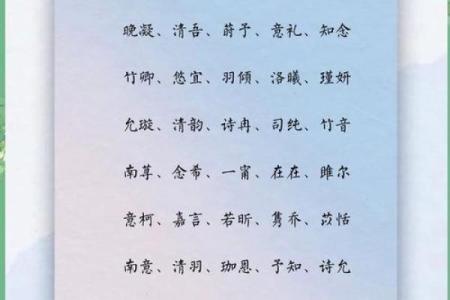 晚凝、清吾、莳予、意礼、知念
竹卿、悠宜、羽倾、洛曦、瑾妍
允璇、清韵、诗冉、司纯、竹音
南荨、念希、一甯、在在、雎尔
意柯、嘉言、若昕、隽乔、苡恬
南意、清羽、珈恩、予知、诗允